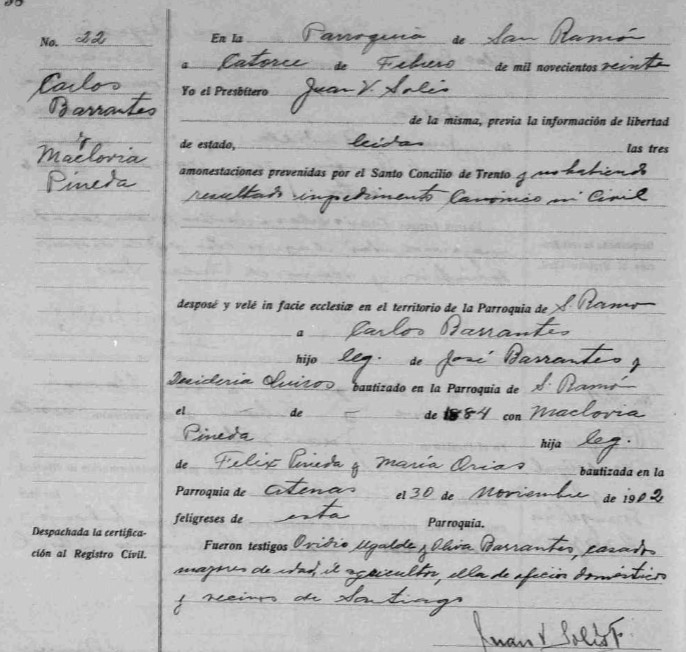 No. 22
Carlos
Barrantes
y
Maclovia
Pineda
En la Parroquia de San Ramón
a Catorce de Febrero de mil novecientos veinte
Yo el Presbítero Juan V. Solis
de la misma, previa la información de libertad
de estado, leidas las tres
amonestaciones prevenidas por el Santo Concilio de Trento y no habiendo
resultado impedimento Canónico ni Civil
desposé y velé in facie ecclesiæ en el territorio de la Parroquia de S. Ramon
a Carlos Barrantes
hijo leg. de José Barrantes y
Desideria Quiros bautizado en la Parroquia de S. Ramón
el de - de 1884 con Maclovia
Pineda hija leg.
de Felix Pineda y María Arias bautizada en la
Parroquia de Atenas el 30 de Noviembre de 1902
feligreses de esta Parroquia.
Fueron testigos Ovidio Ugalde y Oliva Barrantes, casados
mayores de edad, el agricultor, ella de oficios domésticos
y vecinos de Santiago
Juan V. Solis F.
Despachada la certifica-
ción al Registro Civil.